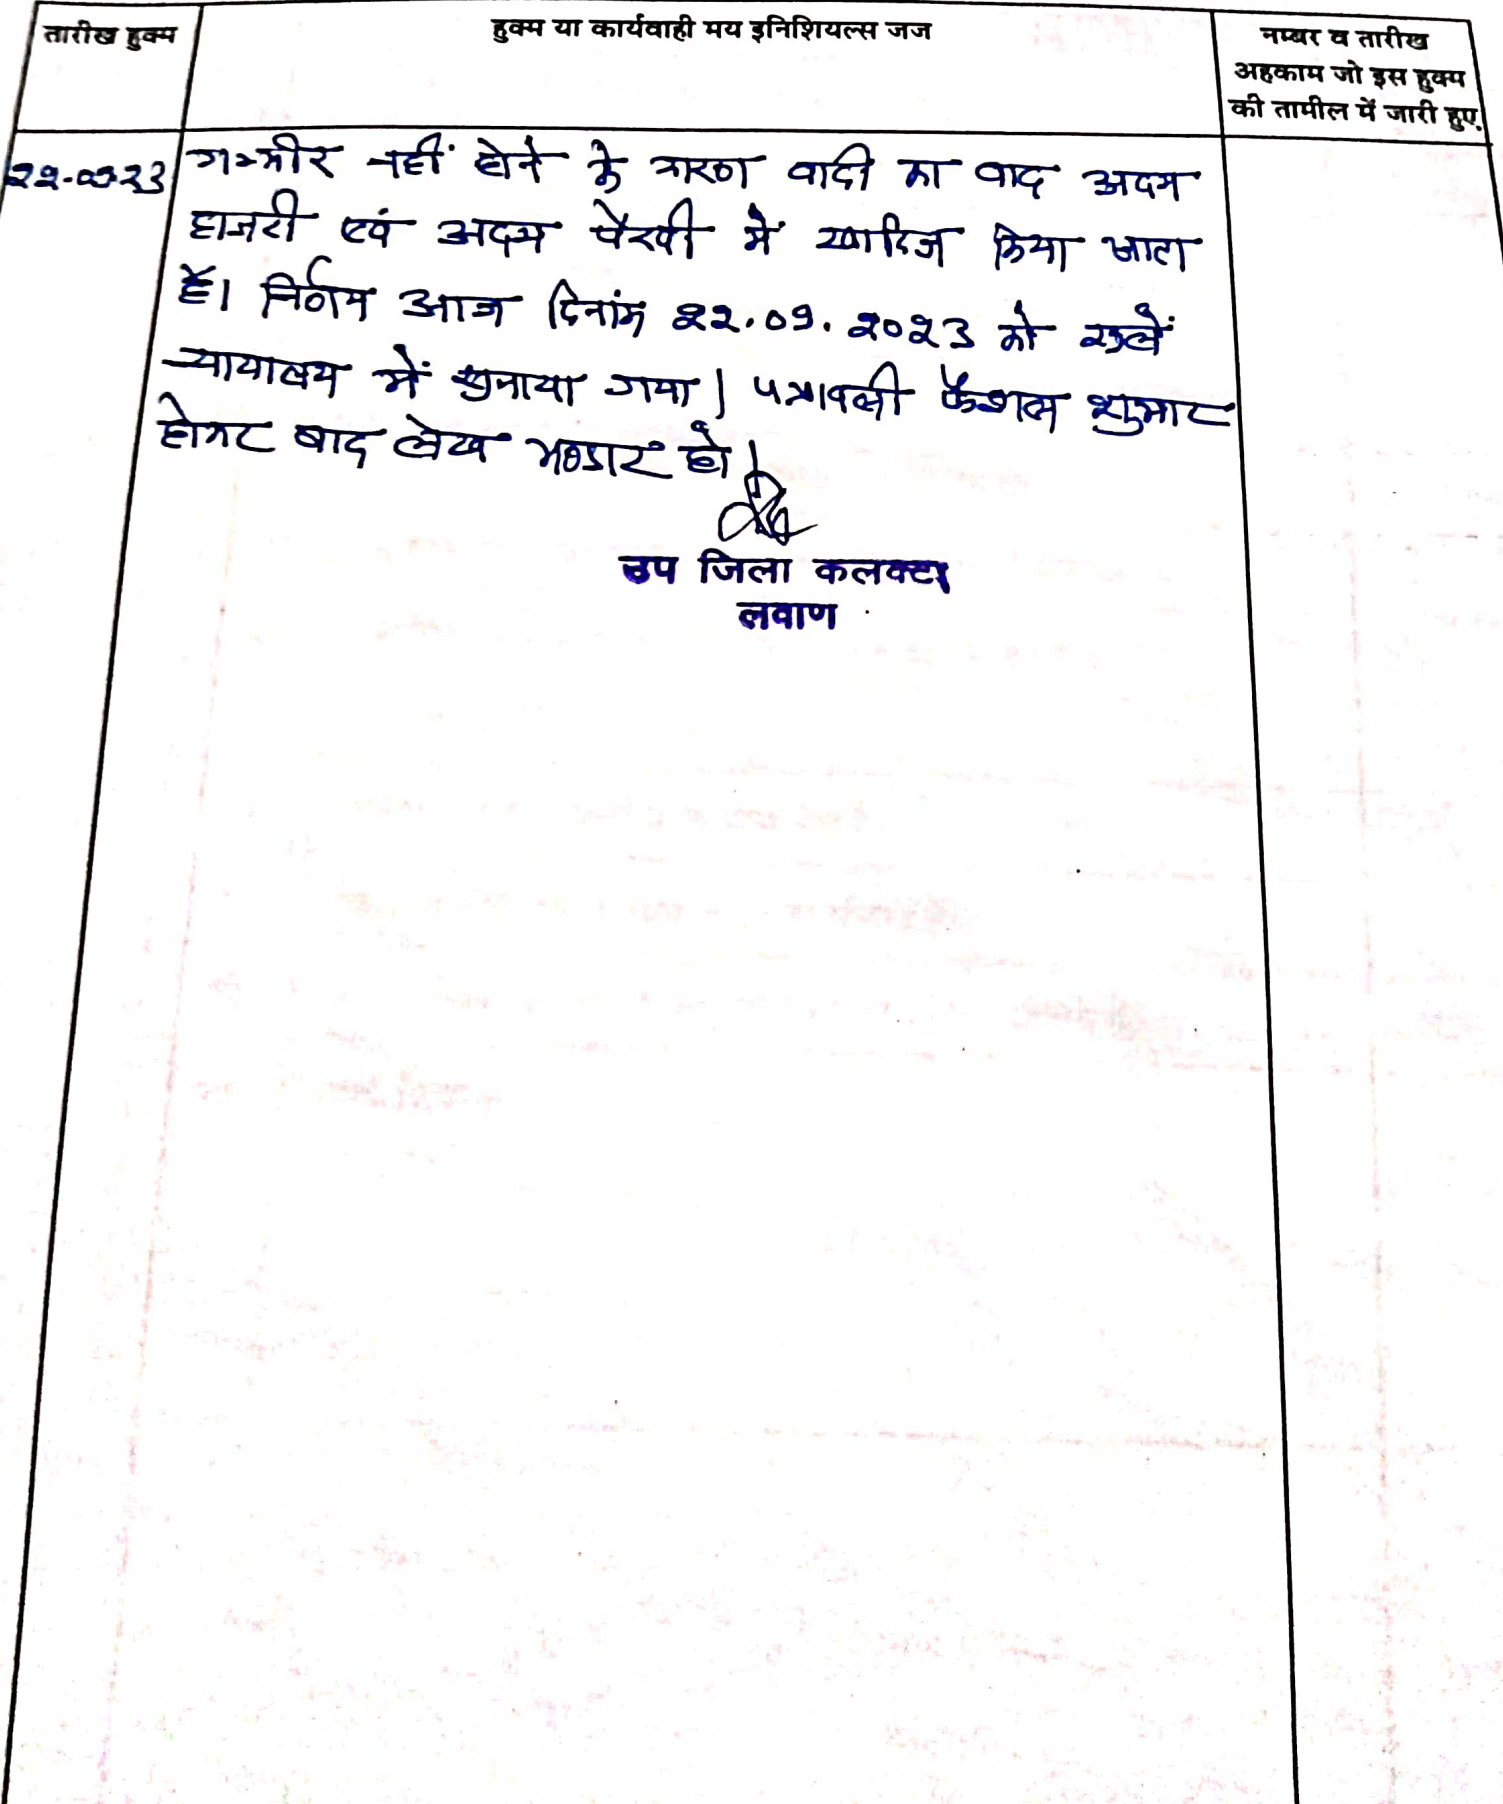 तारीख हुक्म
हुक्म या कार्यवाही मय इनिशियल्स जज
नम्बर व तारीख
अहकाम जो इस हुक्म
की तामील में जारी हुए.
22-09-23
गम्भीर नहीं होने के कारण वादी का वाद अदम
हाजरी एवं अदम पैरवी में खारिज किया जाता
है। निर्णय आज दिनांक 22.09.2023 को खुले
न्यायालय में सुनाया गया। पत्रावली फैशल शुमार
होकर बाद लेख भण्डार हो।
उप जिला कलक्टर
लवाण